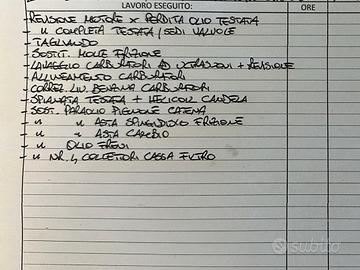 LAVORO ESEGUITO: ORE
- REVISIONE MOTORE X PERDITA OLIO TESTATA
- " COMPLETA TESTATA / SEDI VALVOLE
- TAGLIANDO
- SOSTIT. MOLLE FRIZIONE
- LAVAGGIO CARBURATORI AD ULTRASUONI + REVISIONE
- ALLINEAMENTO CARBURATORI
- CORREZ. LIV. BENZINA CARBURATORI
- SPIANATA TESTATA + HELICOIL CANDELA
- SOST. PARAOLIO PIGNONE CATENA
- " " ASTA SPINGIDISCO FRIZIONE
- " " ASTA CAMBIO
- " OLIO FRENI
- " NR. 4 COLLETTORI CASSA FILTRO
subito